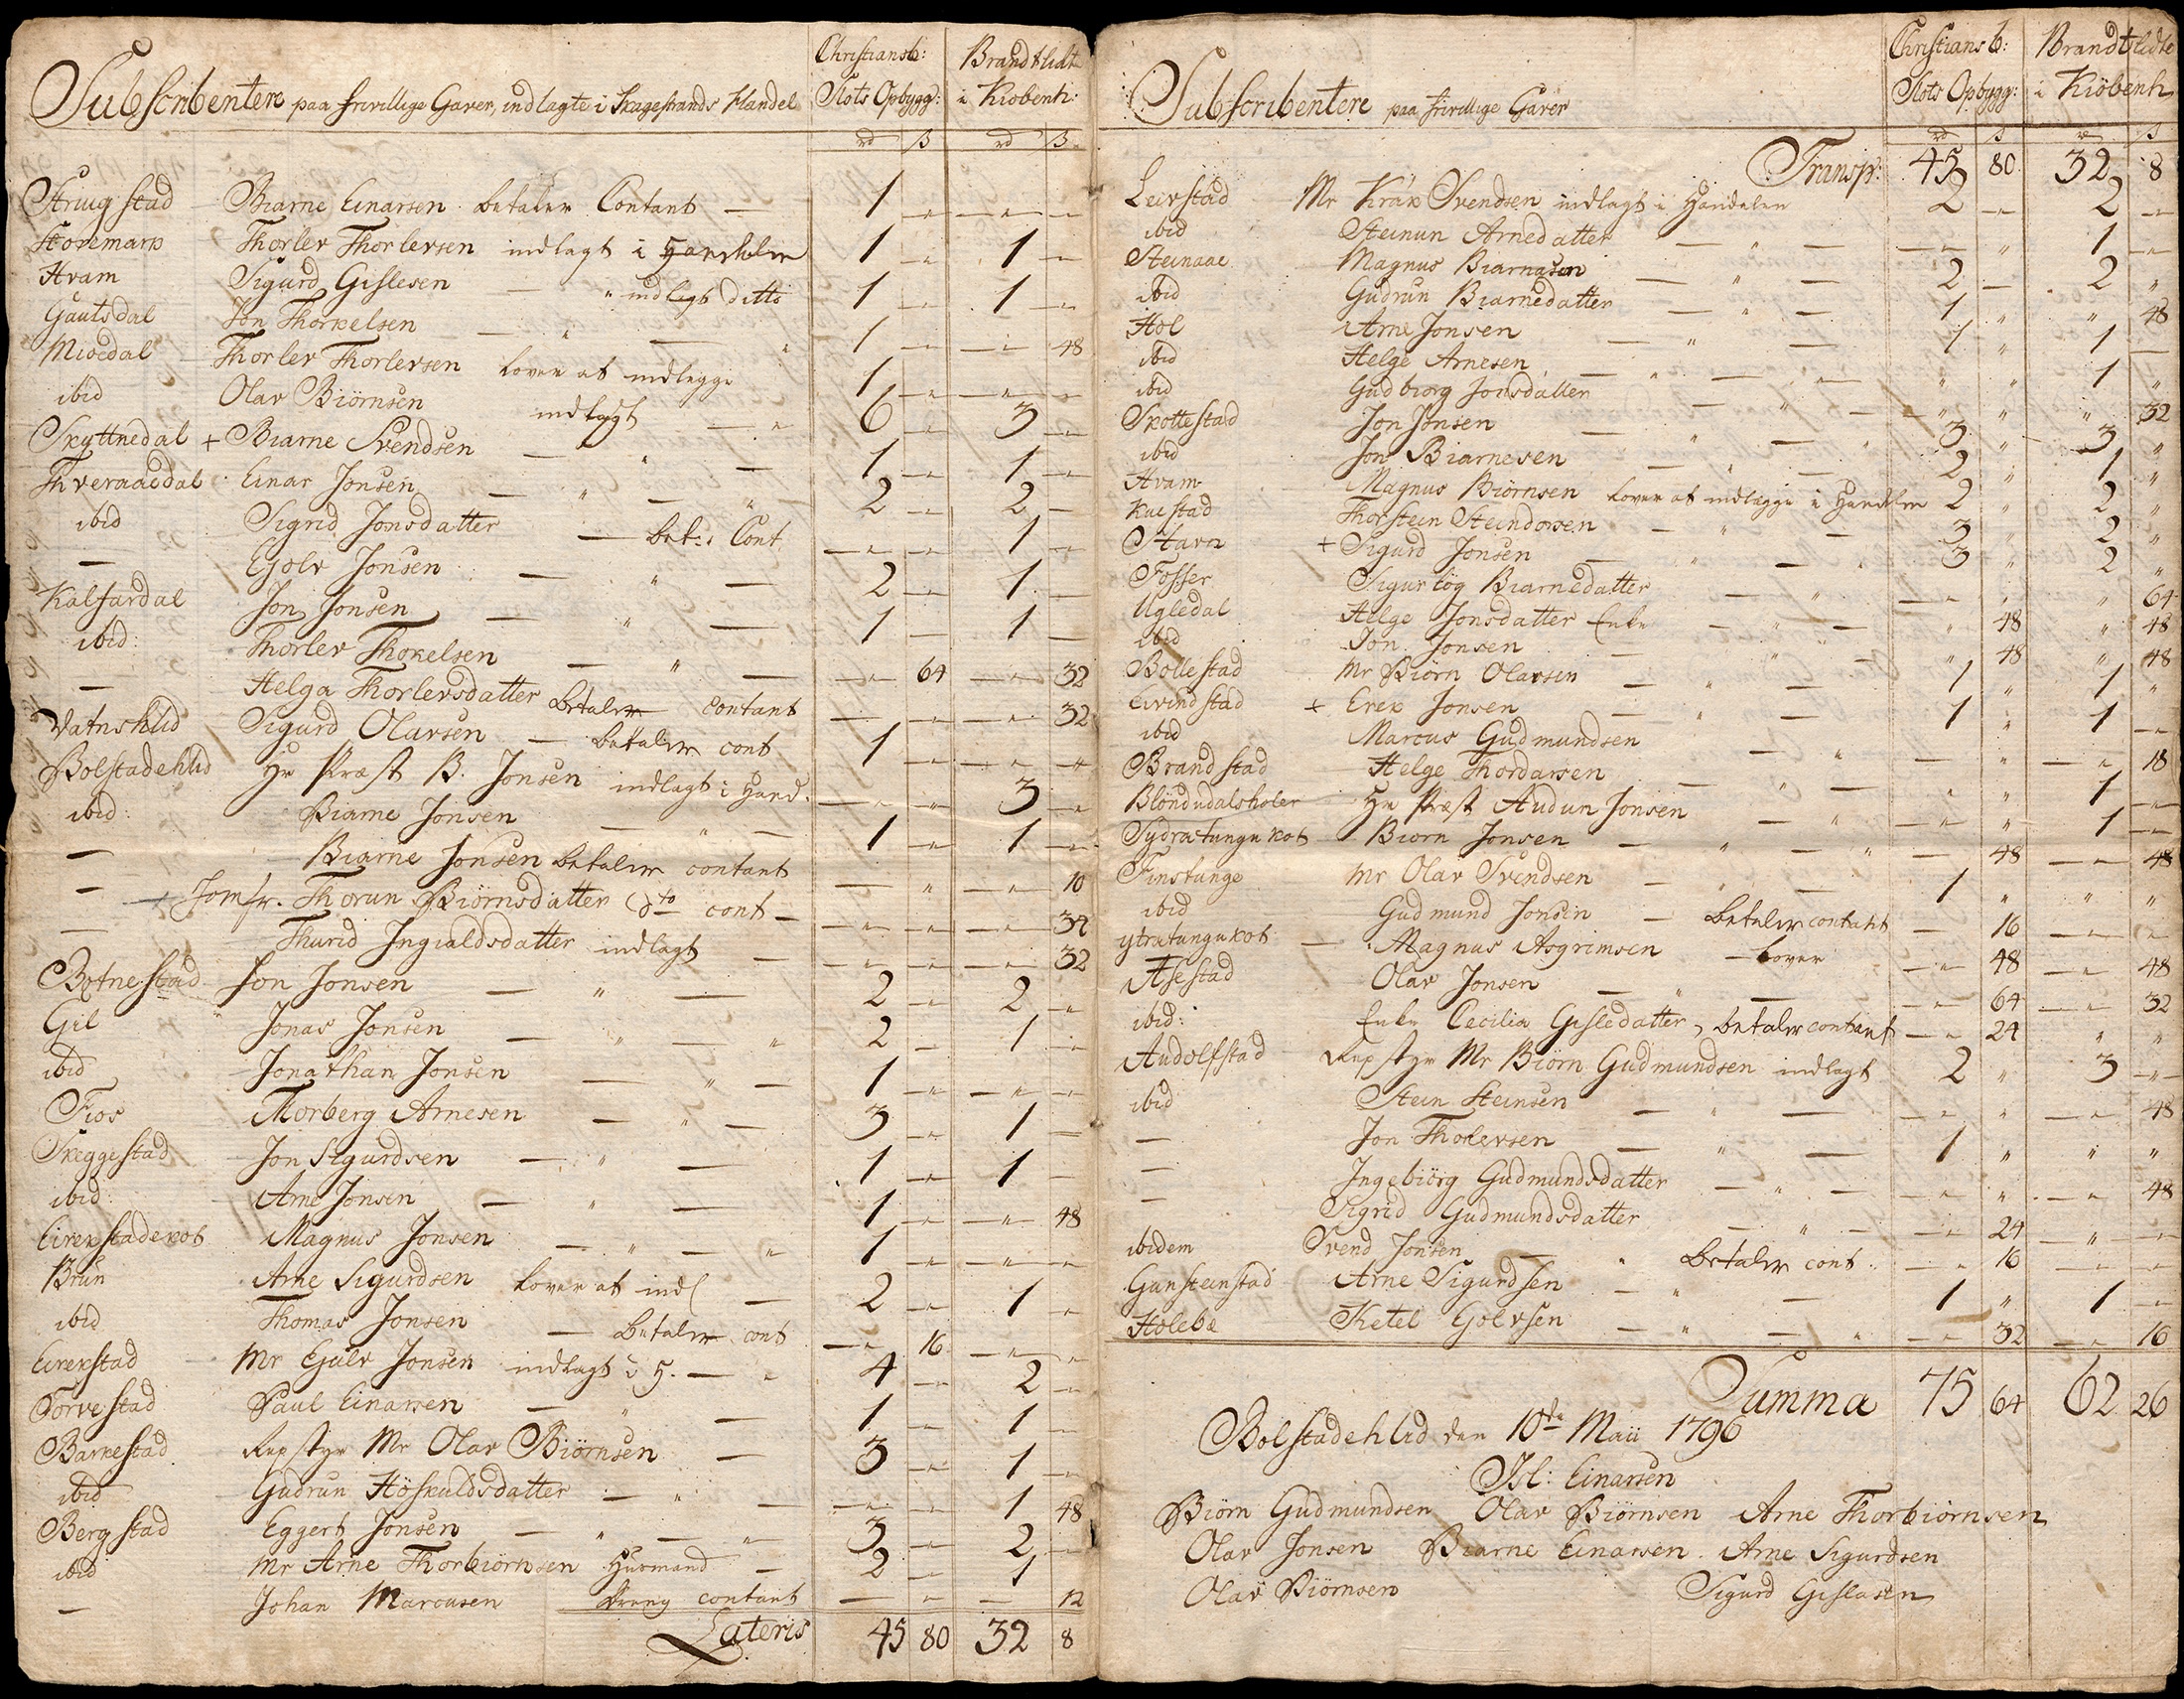 Subscribentere paa frivillige Gaver, indlagte i Skagestrands Handel
Christiansb: Slots Opbygg:
Brandtlidte i Kiöbenh:
rd ß rd ß
Striugstad Biarne Einarsen betaler Contant — 1 „ — „ — „
Storemark Thorlev Thorlevsen indlagt i Handelen 1 „ 1 „
Hvam Sigurd Gislesen — „ indlagt ditto 1 „ 1 „
Gautsdal Jon Thorkelsen — „ — „ 1 „ — „ 48
Miöedal Thorlev Thorlevsen lover at indlegge 1 „ — „ „
ibid Olav Biörnsen indlagt — „ 6 „ 3 „
Skyttnedal + Biarne Svendsen — „ — 1 „ 1 „
Thveraaedal Einar Jonsen — „ — „ 2 „ 2 —
ibid Sigrid Jonsdatter — bet: Cont — „ — „ 1 „
— Ejolv Jonsen — „ — 2 „ 1 —
Kalfardal Jon Jonsen — „ — 1 „ 1 —
ibid: Thorlev Thokelsen — „ — — „ 64 — „ 32
— Helga Thorlevsdatter betaler contant — „ — „ — „ 32
Vatnshlid Sigurd Olavsen — betaler cont 1 „ — „ „
Bolstadehlid Hr Præst B. Jonsen indlagt i Hand. — „ „ 3 „
ibid: Biarne Jonsen — „ — 1 „ 1 „
— Biarne Jonsen betaler contant — „ — „ 10
— + Jomfr. Thorun Biörnsdatter dto cont — — „ — „ — „ 34
— Thurid Ingialdsdatter indlagt — — „ — „ — „ 32
Botnestad Jon Jonsen — „ — 2 „ 2 „
Gil Jonas Jonsen — „ — „ 2 — 1 „
ibid Jonathan Jonsen — „ — 1 „ — „ „
Fios Thorberg Arnesen — „ — 3 „ 1 —
Skeggestad Jon Sigurdsen — „ — 1 „ 1 —
ibid: Arne Jonsen — „ — 1 „ — „ 48
Eirekstadekot Magnus Jonsen — „ — „ 1 „ — „ „
Brun Arne Sigurdsen lover at indl — 2 „ 1 „
ibid Thomas Jonsen — betaler cont — „ 16 — „ „
Eirekstad Mr Ejulv Jonsen indlagt i H. — „ 4 „ 2 „
Torvestad Paul Einarsen — „ — 1 „ 1 —
Barkestad Repstyr Mr Olav Biörnsen — 3 „ 1 „
ibid Gudrun Höskuldsdatter — „ — — „ — „ 1 48
Bergstad Eggert Jonsen — „ — „ 3 „ 2 —
ibid Mr Arne Thorbiörnsen Husmand — 2 „ 1 —
— Johan Marcusen Dreng contant — „ — 12
Lateris 45 80 32 8
Subscribentere paa frivillige Gaver
Christiansb: Slots Opbygg:
Brandtlidte i Kiöbenh
rd ß rd ß
Transp: 45 80 32 8
Leirstad Mr Kråk Svendsen indlagt i Handelen 2 „ 2 „
ibid Steinun Arnedatter — „ — — „ „ 1 „
Steinaae Magnus Biarnasen — „ — 2 — 2 „
ibid Gudrun Biarnedatter — „ — 1 „ „ 48
Hol Arne Jonsen — „ — 1 „ 1 —
ibid Helge Arnesen — „ — „ „ „ 1 „
ibid Gudbiorg Jonsdatter — „ — „ „ „ 32
Skottestad Jon Jonsen — „ — „ 3 „ 3 „
ibid Jon Biarnesen — „ — 2 „ 1 „
Hvam Magnus Biörnsen lover at indlægge i Handelen 2 „ 2 „
Kuestad Thorstein Steindorsen — „ — 3 „ 2 „
Stavn + Sigurd Jonsen — „ — „ 3 „ 2 „
Fosser Sigurlög Biarnedatter — „ — — „ „ „ 64
Ugledal Helge Jonsdatter Enke — „ — „ 48 „ 48
ibid Jon Jonsen — „ — „ 48 „ 48
Bollestad Mr Biörn Olavsen — „ — 1 „ 1 „
Eivindstad + Erek Jonsen — „ — 1 „ 1 „
ibid Marcus Gudmundsen — „ — — „ — „ 18
Brandstad Helge Thordarsen — „ — „ „ 1 „
Blöndudalsholer Hr Præst Audun Jonsen — „ — — „ „ 1 —
Sydratungukot Biorn Jonsen — „ — „ — 48 — „ 48
Finstunge Mr Olav Svendsen — „ — 1 „ „ „
ibid Gudmund Jonsen — betaler contant — 16 — „ „
Ytratungukot — Magnus Asgrimsen — lover — „ 48 — „ 48
Asestad Olav Jonsen — „ — — „ 64 — „ 32
ibid: Enke Cecilia Gisledatter, betaler contant — „ 24 „ „
Audolfstad Repstyr Mr Biörn Gudmundsen indlagt 2 „ 3 „
ibid Stein Steinsen — „ — — „ „ — „ 48
— Jon Tholevsen — „ — 1 „ „ „
— Ingebiörg Gudmundsdatter — „ — — „ „ — „ 48
— Sigrid Gudmundsdatter — „ — — „ 24 — „ —
ibidem Svend Jonsen — „ betaler cont. — „ 16 — „ „
Gunsteinstad Arne Sigurdsen — „ — 1 „ 1 „
Holebæ Ketel Ejolvsen — „ — „ — „ 32 — „ 16
Summa 75 64 62 26
Bolstadehlid den 10de Maii 1796
Isl: Einarsen
Biörn Gudmundsen Olav Biörnsen Arne Thorbiörnsen
Olav Jonsen Biarne Einarsen. Arne Sigurdsen
Olav Biörnsen Sigurd Gislasen